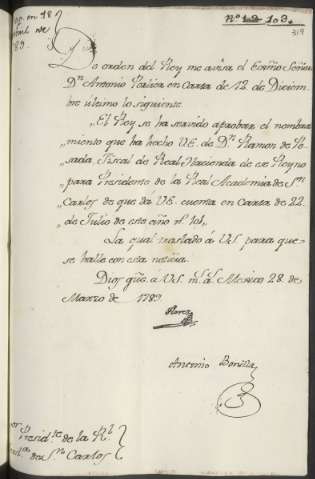 en 18
de
89.
nº 12 103.
319
De orden del Rey me avisa el Exmo. Señor
Dn. Antonio Porlier en Carta de 12. de Diciem-
bre ultimo lo siguiente.
"El Rey se ha servido aprobar el nombra-
"miento que ha hecho VE. de Dn. Ramon de Po-
"sada, Fiscal de Real Hacienda de ese Reyno
"para Presidente de la Real Academia de Sn.
"Carlos de que dá VE. cuenta en Carta de 22.
"de Julio de este año nº 101.
La qual traslado á VS. para que
se halle con esta noticia.
Dios gue. á VS. ms. as. Mexico 28. de
Marzo de 1789.
Florez
Antonio Bonilla
Presidte. de la Rl.
de Sn. Carlos